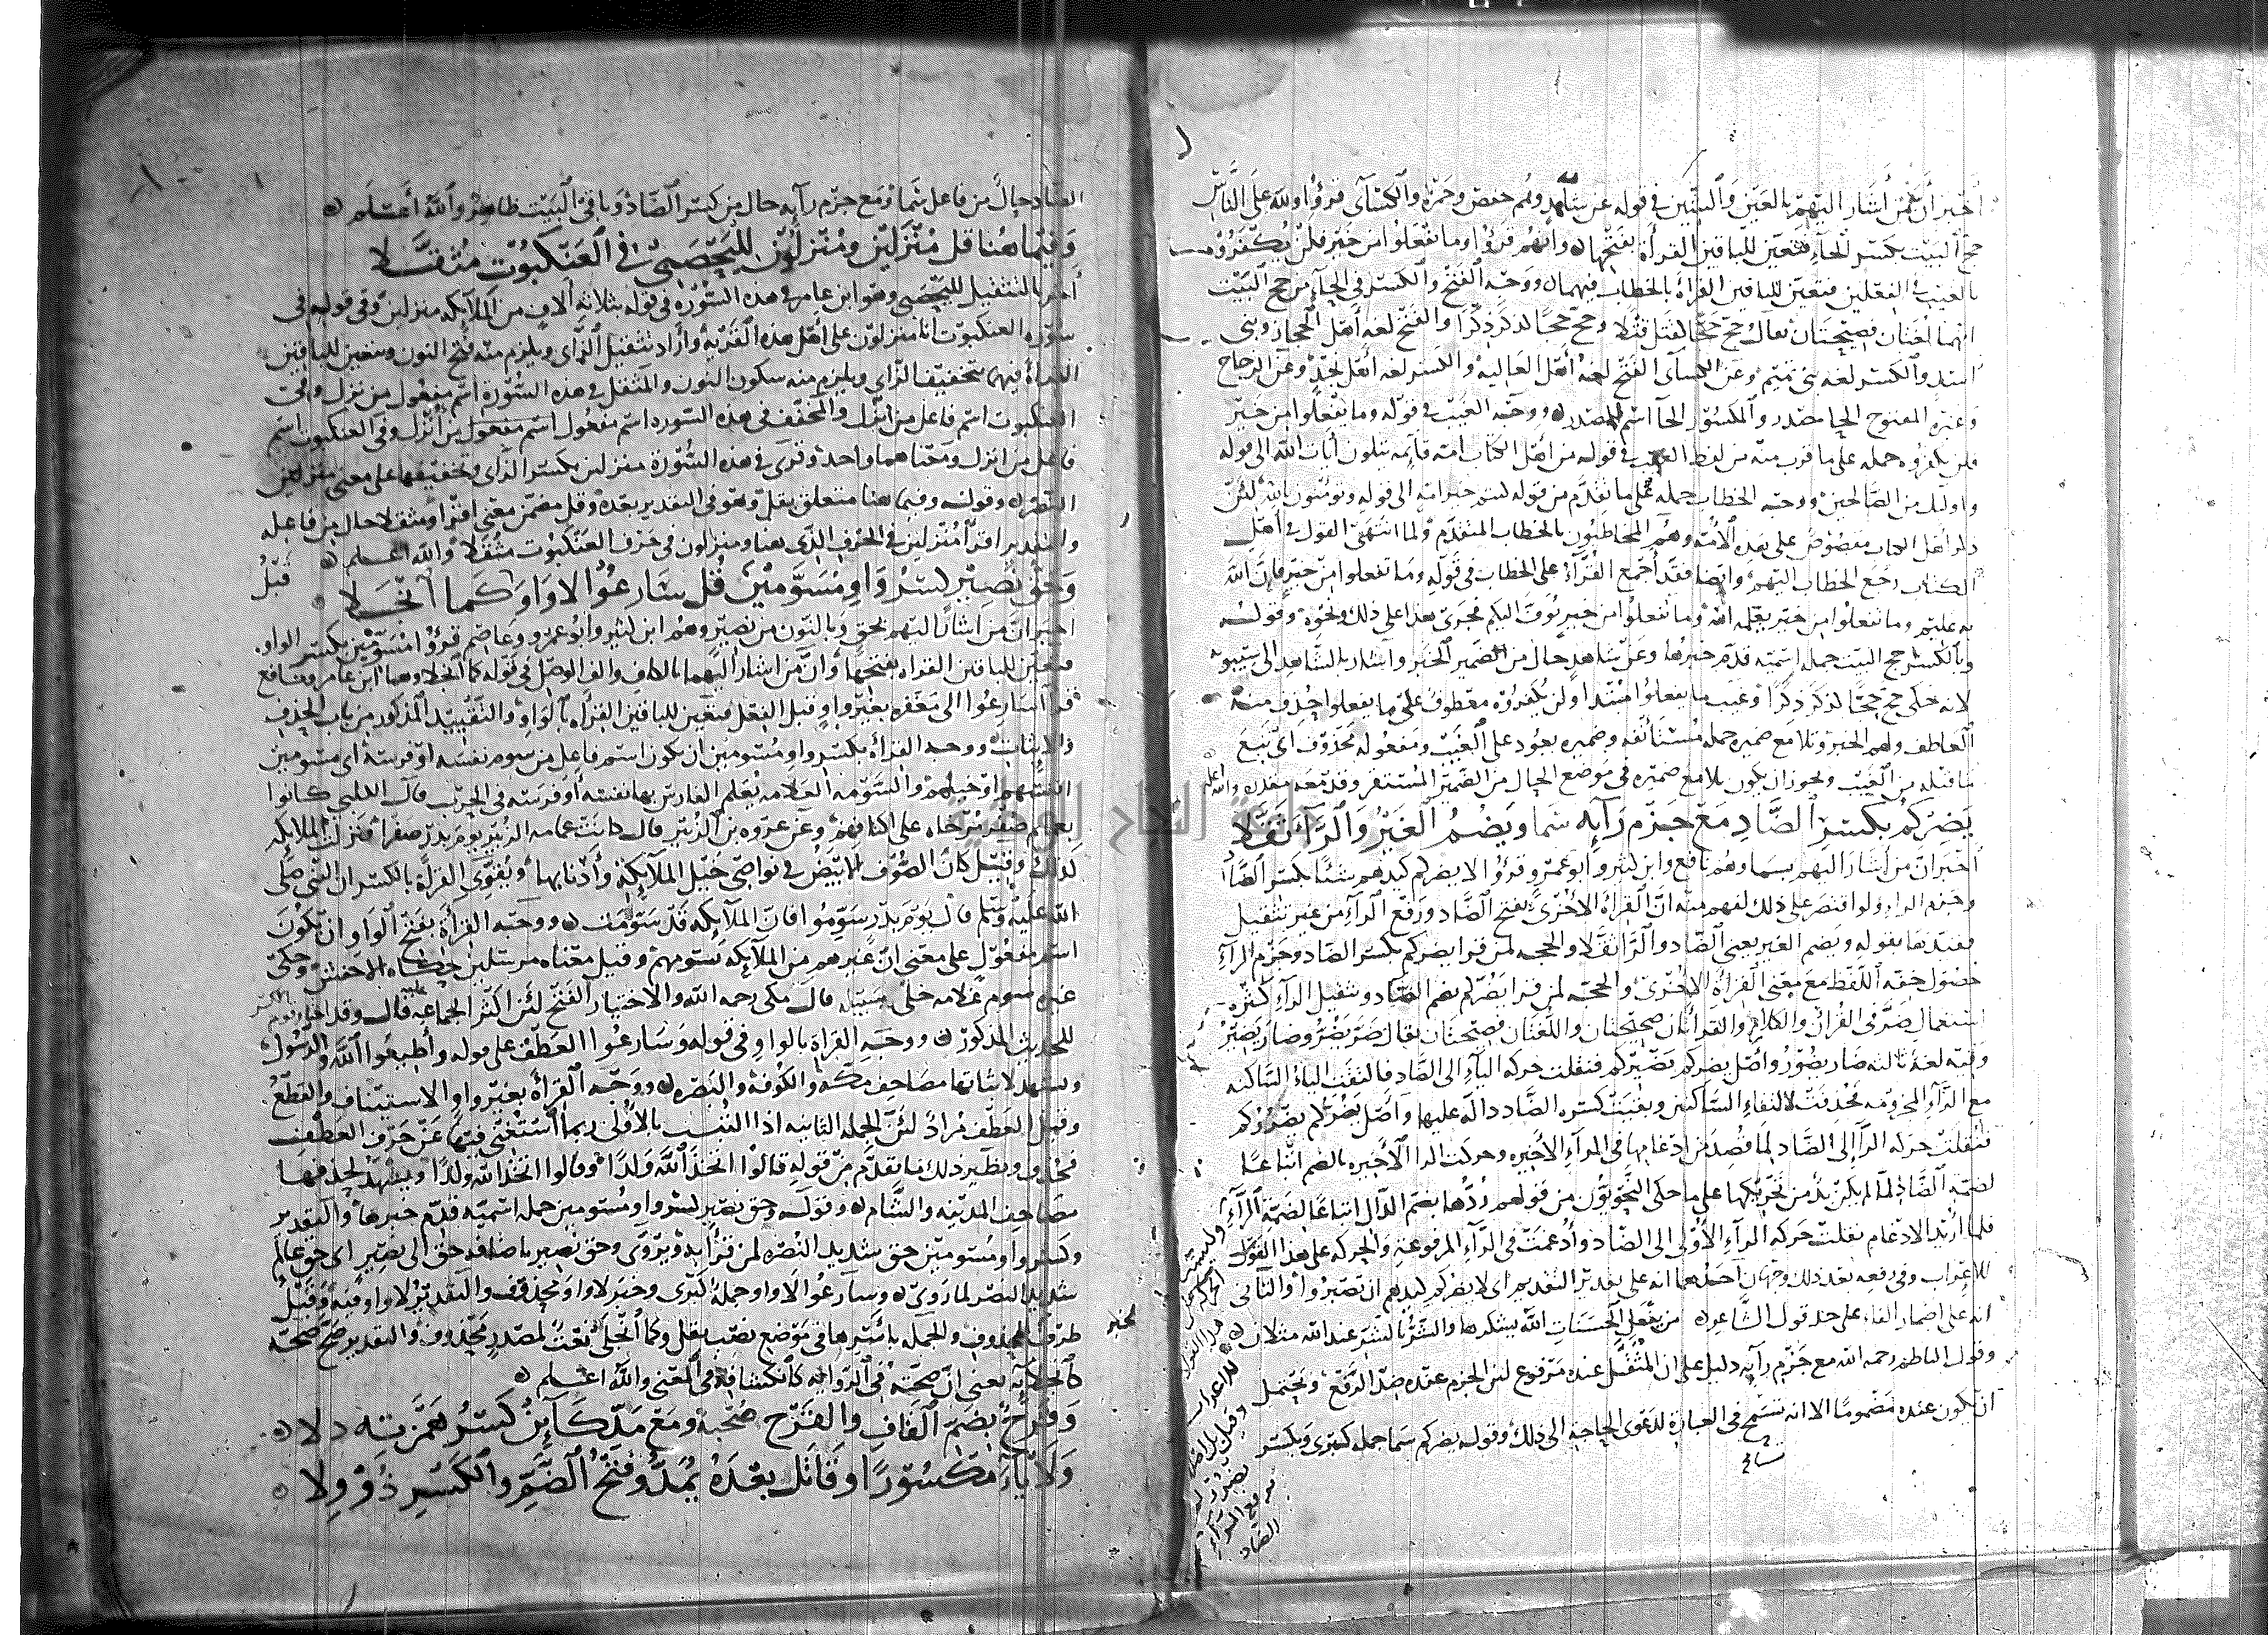 اخبر ان من أشار اليهم بالعين والشين في قوله عن شاهد وهم حفص وحمزة والكسآئي قرؤا ولله على الناس
حج البيت بكسر الحاء فتعين للباقين القرأة بفتحها وانهم قرؤا وما تفعلوا من خير فلن تكفروه
بالغيب في الفعلين فتعين للباقين القراة بالخطاب فيهما ووجه الفتح والكسر في الحآء من حج البيت
انهما لغتان فصيحتان يقال حج حجا لقتل قتلا وحج حجا لذكر ذكرا والفتح لغة أهل الحجاز وبني
اسد والكسر لغة بني تميم وعن الكسآئي الفتح لغة أهل العالية والكسر لغة أهل نجد وعن الزجاج
وغيره المفتوح الحا مصدر والمكسور الحآ اسم للمصدر ووجه الغيب في قوله وما يفعلوا من خير
فلن يكفروه حمله على ما قرب منه من لفظ الغيب في قوله من اهل الكتاب امة قآئمة يتلون آيات الله الى قوله
واولئك من الصالحين ووجه الخطاب حمله على ما تقدم من قوله كنتم خير امة الى قوله وتومنون بالله لئن
ذكر اهل الكتاب مقصوص على هذه الأمة وهم المخاطبون بالخطاب المتقدم ولما انتهى القول في أهل
الكتاب رجع الخطاب اليهم وايضا فقد أجمع القرآء على الخطاب في قوله وما تفعلوا من خير فإن الله
به عليم وما تفعلوا من خير يعلمه الله وما تنفقوا من خير يوف اليكم فجرى هذا على ذلك ونحوه وقوله
وبالكسر حج البيت جملة اسمية قدم خبرها وعن شاهد حال من الضمير الخبر وأشار بالشاهد الى سيبويه
لانه حكى حج حجا لذكر ذكرا وغيب ما يفعلوا مبتدا ولن يكفروه معطوف على ما يفعلوا حذف منه
العاطف ولهم الخبر وتلا مع ضميره جملة مستأنفة وضميره يعود على الغيب ومفعوله محذوف اي تبع
ما قبله من الغيب ويجوز ان يكون تلا مع ضميره في موضع الحال من الضمير المستقر وقد معه مقدرة والله اعلم
يضركم بكسر الصاد مع جزم رآيه سما ويضم الغير والرآء ثقلا
أخبر ان من أشار اليهم بسما وهم نافع وابن كثير وأبو عمرو قرؤا لا يضركم كيدهم شيئا بكسر الصاد
وجزم الراء ولو اقتصر على ذلك لفهم منه ان القراة الأخرى بفتح الصاد ورفع الرآء من غير تثقيل
فقيدها بقوله ويضم الغير يعني الصاد والرا ثقلا والحجة لمن قرا يضركم بكسر الصاد وجزم الراء
حصول خفة اللفظ مع معنى القراة الأخرى والحجة لمن قرا يضركم بضم الضاد وتثقيل الرآء كثرة
استعمال ضر في القرآن والكلام والقرأتان صحيحتان واللغتان فصيحتان يقال ضر يضر وضار يضير
وفيه لغة ثالثة ضار يضور وأصل يضركم يضيركم فنقلت حركة اليآء الى الضاد فالتقت الياء الساكنة
مع الرآء المجزومة فحذفت لالتقاء الساكنين وبقيت كسرة الضاد دالة عليها وأصل يضركم يضرركم
فنقلت حركة الرآ إلى الضاد لما قصد من إدغامها في الرآء الأخيرة وحركت الرا الأخيرة بالضم اتباعا
لضمة الضاد لما لم يكن بد من تحريكها على ما حكى النحويون من قولهم ردها بضم الدال اتباعا لضمة الرآء
فلما اريد الادغام نقلت حركة الرآء الأولى الى الضاد وأدغمت في الرآء المرفوعة والحركة على هذا القول
للاعراب وفي رفعه بعد ذلك وجهان احدهما انه على تقدير التقديم اي لا يضركم كيدهم ان تصبروا والثاني
انه على اضمار الفاء على حد قول الشاعر من يفعل الحسنات الله يشكرها والشر بالشر عند الله مثلان
وقول الناظم رحمه الله مع جزم رآيه دليل على ان المثقل عنده مرفوع لئن الجزم عنده ضد الرفع ويحتمل
ان يكون عنده مضموما الا انه تسمح في العبارة لدعوى الحاجة الى ذلك وقوله يضركم سما جملة كبرى وبكسر
الصاد حال من فاعل سما ومع جزم رآيه حال من كسر الضاد وباقي البيت ظاهر والله أعلم
وفيما هنا قل منزلين ومنزلون لليحصبي في العنكبوت مثقلا
أمر بالتثقيل لليحصبي وهو ابن عامر في هذه السورة في قوله بثلاثة آلاف من الملآئكة منزلين وفي قوله في
سورة العنكبوت انا منزلون على أهل هذه القرية وأراد تثقيل الزاي ويلزم منه فتح النون وتعين للباقين
القراة فيهما بتخفيف الزاي ويلزم منه سكون النون والمثقل في هذه السورة اسم مفعول من نزل وفي
العنكبوت اسم فاعل من انزل والمخفف في هذه السورة اسم مفعول من أنزل وفي العنكبوت اسم
فاعل من انزل ومعناهما واحد وقرئ في هذه السورة منزلين بكسر الزاي وتخفيفها على معنى منزلين
النصر وقوله وفيما هنا متعلق بقل وهو في التقدير بعده وقل مضمن معنى اقرا ومثقلا حال من فاعله
والتقدير اقرأ منزلين في الحرف الذي هنا ومنزلون في حرف العنكبوت مثقلا والله اعلم
وحق نصير كسر واو مسومين قل سارعوا لا واو كما انجلا قبل
اخبر ان من اشار اليهم بحق وبالنون من نصير وهم ابن كثير وابو عمرو وعاصم قرؤا مسومين بكسر الواو
فتعين للباقين القراه بفتحها وأن من اشار اليهما بالكاف والف الوصل في قوله كما انجلا وهما ابن عامر ونافع
قرآ سارعوا الى مغفرة بغير واو قبل الفعل فتعين للباقين القرأه بالواو والتقييد المذكور من باب الحذف
والإثبات ووجه القراة بكسر واو مسومين ان يكون اسم فاعل من سوم نفسه او فرسه اي مسومين
انفسهم او خيلهم والسومة العلامة يعلم الفارس بها نفسه أو فرسه في الحرب قال الكلبي كانوا
بعمائم صفر مرخاة على اكتافهم وعن عروة بن الزبير قال كانت عمامة الزبير يوم بدر صفرا فنزلت الملائكة
كذلك وقيل كان الصوف الابيض في نواصي خيل الملآئكة وأذنابها ويقوي القراة بالكسر ان النبي صلى
الله عليه وسلم قال يوم بدر سوموا فان الملآئكة قد سومت ووجه القراة بفتح الواو ان تكون
اسم مفعول على معنى ان غيرهم من الملآئكة سومهم وقيل معناه مرسلين حكاه الاخفش وحكى
غيره سوم غلامه خلى سبيله قال مكي رحمه الله والاختيار الفتح لئن اكثر الجماعة عليه قال وقد اختار قوم الكسر
للحديث المذكور ووجه القراة بالواو في قوله وسارعوا العطف على قوله وأطيعوا الله والرسول
ويشهد لاثباتها مصاحف مكة والكوفة والبصرة ووجه القرأة بغير واو الاستيناف والقطع
وقيل العطف مراد لئن الجملة الثانية اذا التبست بالأولى ربما أستغني فيها عن حرف العطف
فحذف ونظير ذلك ما تقدم من قوله قالوا اتخذ الله ولدا وقالوا اتخذ الله ولدا ويشهد لحذفها
مصاحف المدينة والشام وقوله وحق نصير كسر واو مسومين جملة اسمية قدم خبرها والتقدير
وكسر واو مسومين حق شديد النصرة لمن قرأ به ويروى وحق نصير باضافة حق الى نصير اي حق عالم
شديد النصر لما روى وسارعوا لا واو جملة كبرى وخبر لا واو محذوف والتقدير لا واو فيه وقيل
ظرف للمحذوف والجملة بأسرها في موضع نصب بقل وكما أنجلى نعت لمصدر محذوف والتقدير صح صحة
كأنجلآئه يعني ان صحته في الرواية كانكشافه في المعنى والله اعلم
وقرح بضم القاف والقرح صحبة ومع مد كآئن كسر همزته دلا
ولا يآء مكسورا وقاتل بعده يمد وفتح الضم والكسر ذو ولا